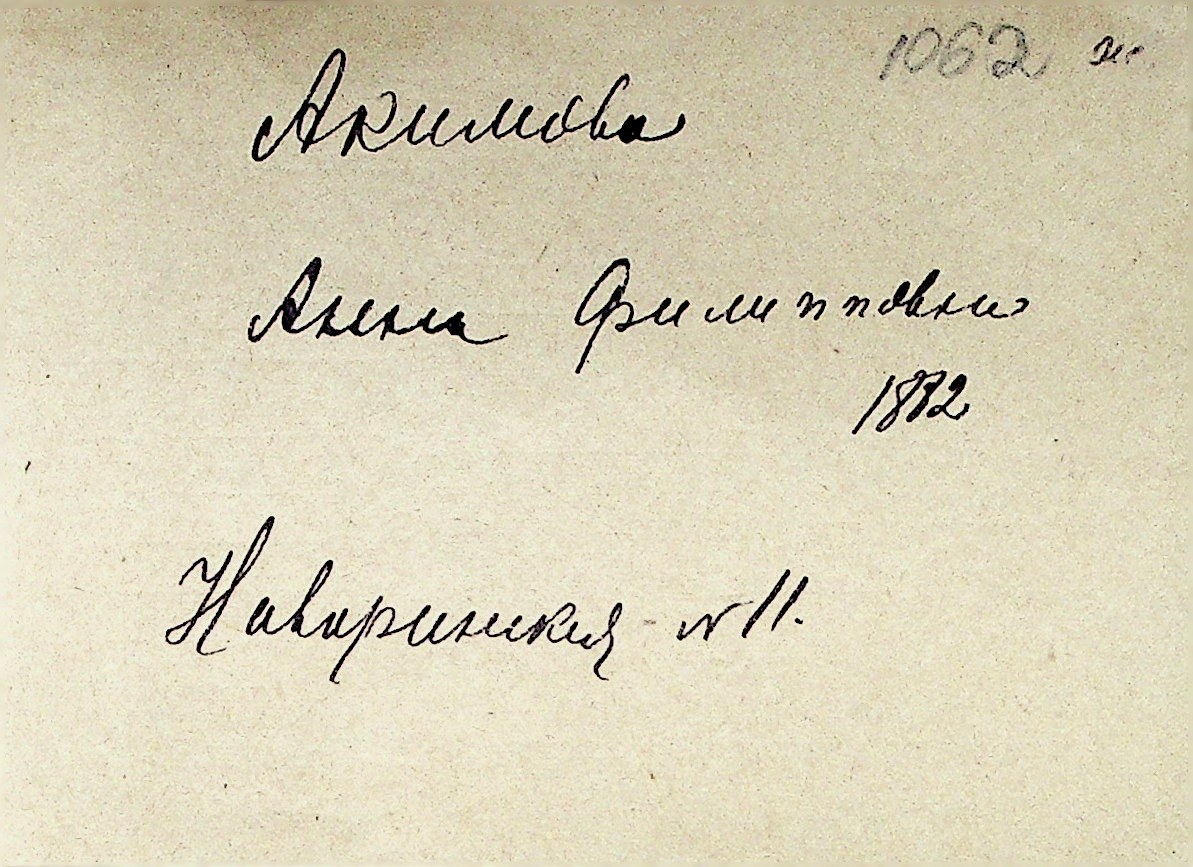 1062 ж.
Акимова
Анна Филипповна
1882
Наваринская № 11.